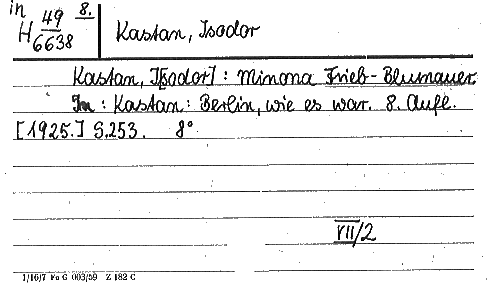 in
49 8.
H 6638
Kastan, Isodor
Kastan, I[sodor] : Minona Frieb-Blumauer
In : Kastan : Berlin, wie es war. 8. Aufl.
[1925.] S.253. 8°
VII/2
1/16/7 Fo G 003/59 Z 182 C